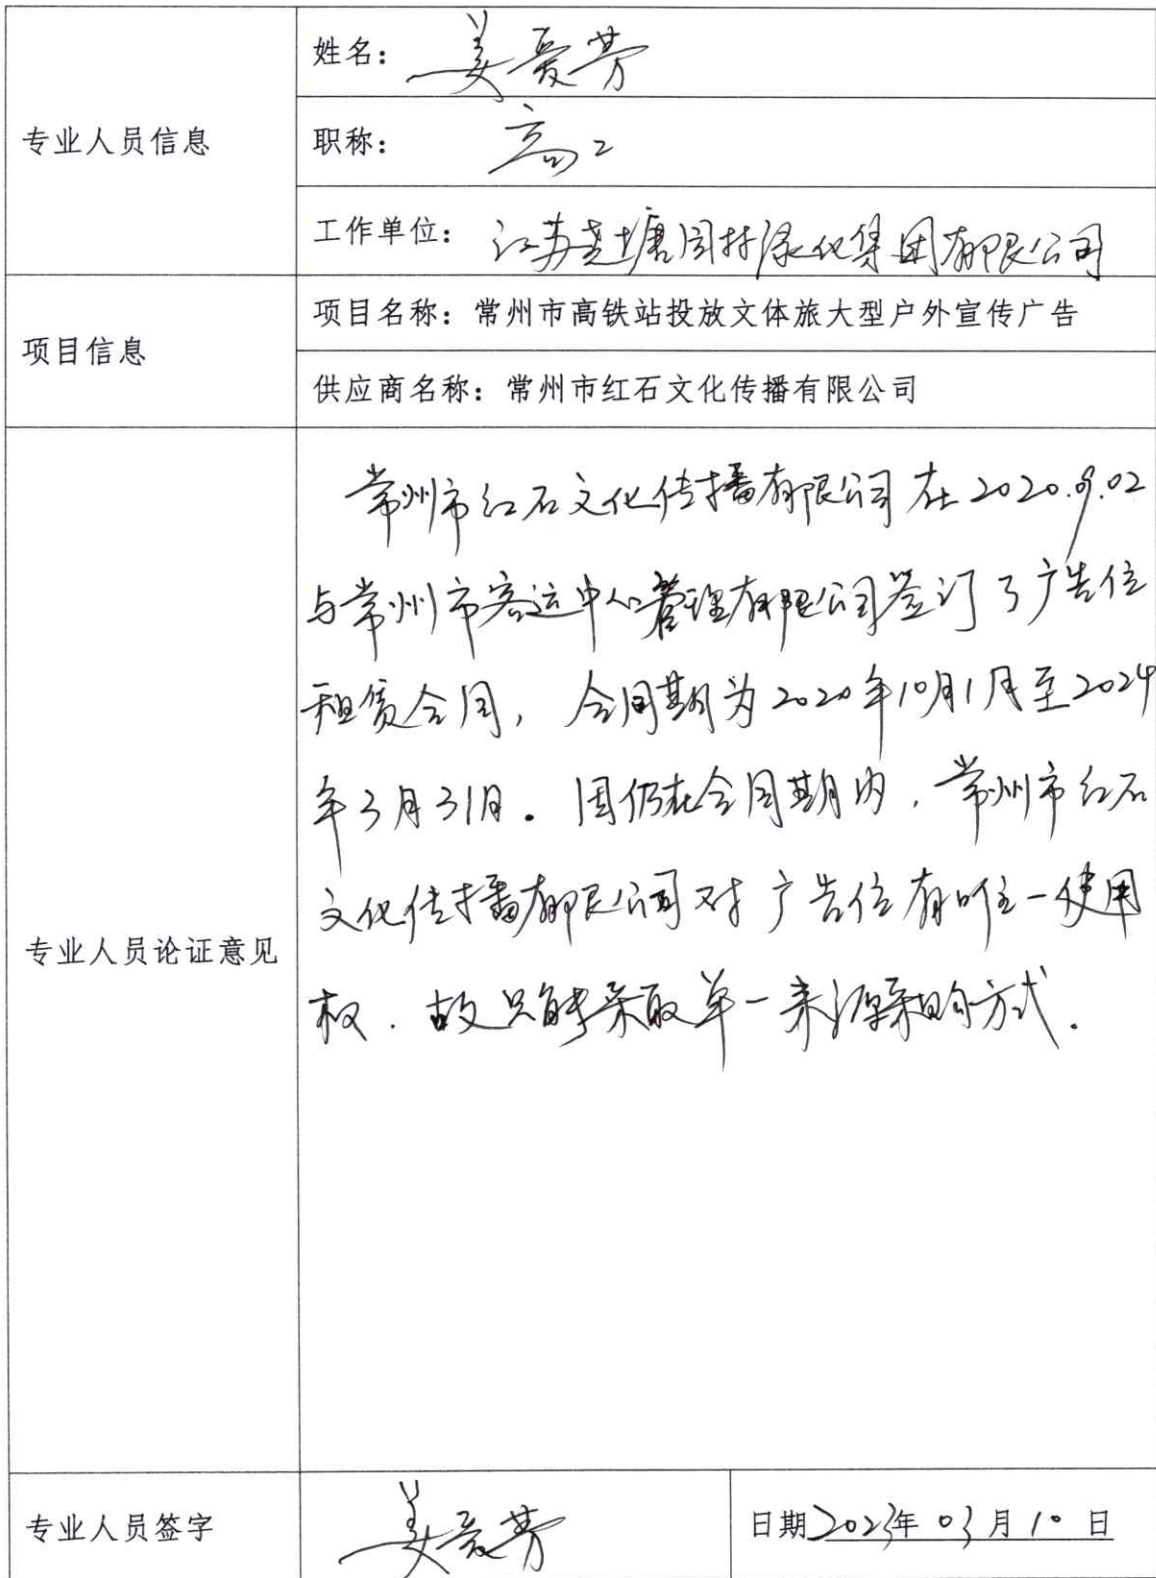 专业人员信息
姓名: 姜爱芳
职称: 高工
工作单位: 江苏尧塘园林绿化集团有限公司
项目信息
项目名称: 常州市高铁站投放文体旅大型户外宣传广告
供应商名称: 常州市红石文化传播有限公司
专业人员论证意见
常州市红石文化传播有限公司在2020.9.02
与常州市客运中心管理有限公司签订了广告位
租赁合同, 合同期为2020年10月1日至2024
年3月31日. 因仍在合同期内, 常州市红石
文化传播有限公司对广告位有唯一使用
权. 故只能采取单一来源采购方式.
专业人员签字
姜爱芳
日期2023年03月10日